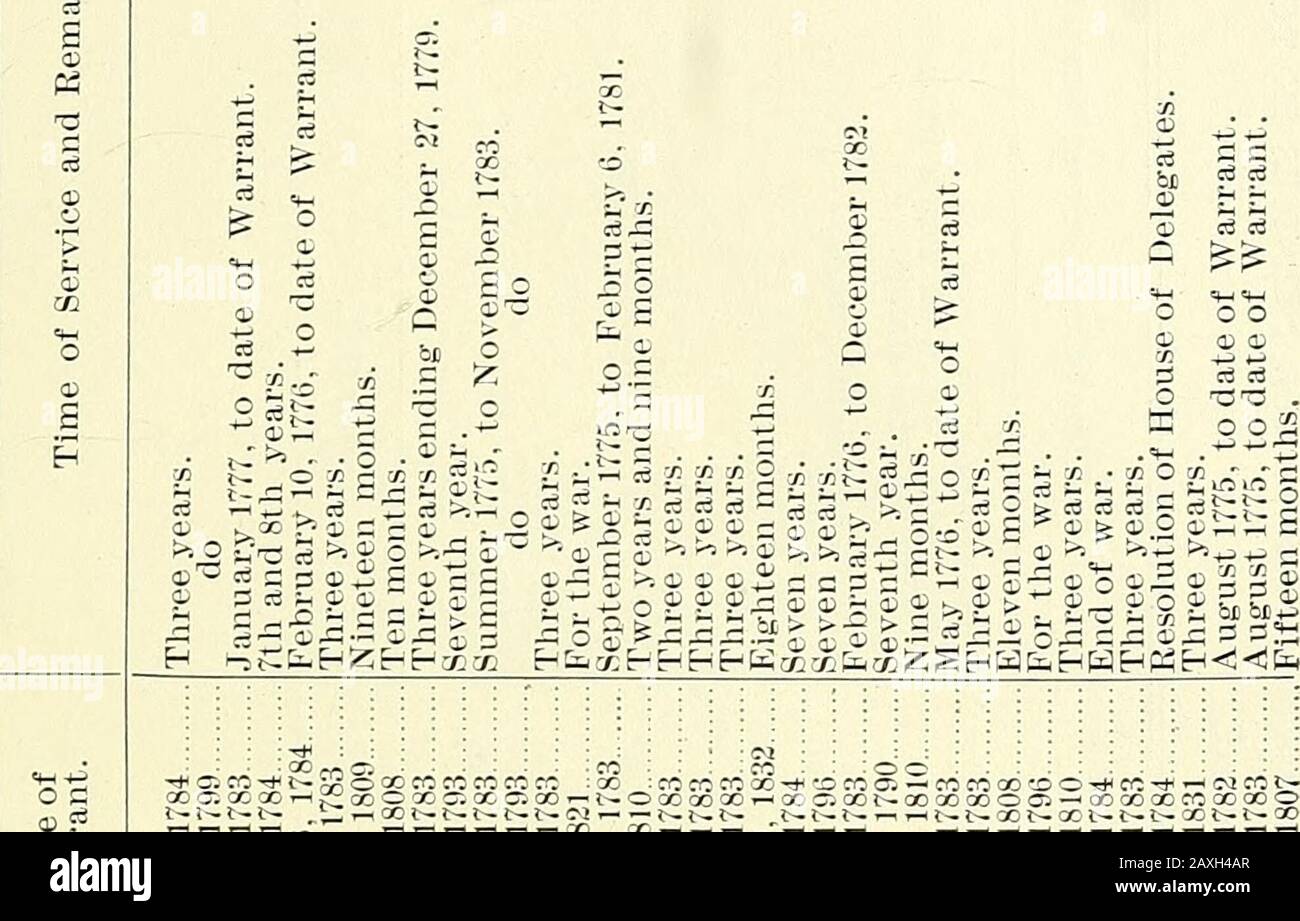 e of
rant. Time of Service and Rema
1784 Three years.
1799 do
1783 January 1777, to date of Warrant.
1784 7th and 8th years.
, 1784 February 10, 1776, to date of Warrant.
1783 Three years.
1809 Nineteen months.
1808 Ten months.
1783 Three years ending December 27, 1779.
1793 Seventh year.
1783 Summer 1775, to November 1783.
1793 do do
1783 Three years.
821 For the war.
1783 September 1775, to February 6, 1781.
810 Two years and nine months.
1783 Three years.
1783 Three years.
1783 Three years.
, 1832 Eighteen months.
1784 Seven years.
1796 Seven years.
1783 February 1776, to December 1782.
1790 Seventh year.
1810 Nine months.
1783 May 1776, to date of Warrant.
1783 Three years.
1808 Eleven months.
1796 For the war.
1810 Three years.
1784 End of war.
1783 Three years.
1784 Resolution of House of Delegates.
1831 Three years.
1782 August 1775, to date of Warrant.
1783 August 1775, to date of Warrant.
1807 Fifteen months.
alamy
Image ID: 2AXH4AR
www.alamy.com